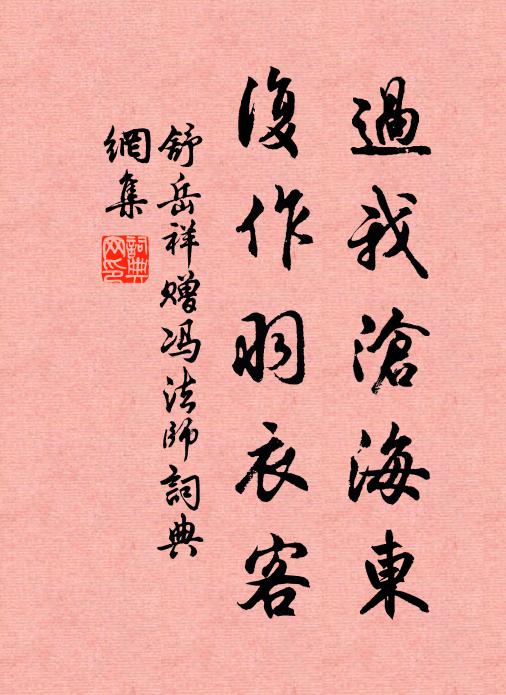 過我滄海東
復作羽衣客
舒岳祥赠冯法師詞典
網集
詞典网印